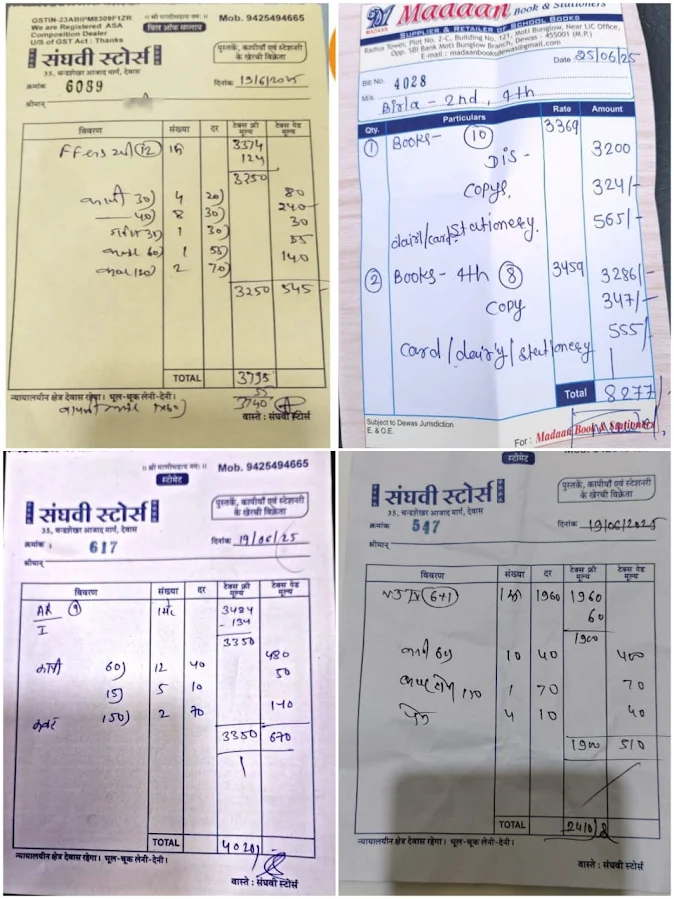 GSTIN-23ABIPM8309F1ZR
We are Registered ASA
Composition Dealer
U/S of GST Act : Thanks
Mob. 9425494665
बिल ऑफ सप्लाय
संघवी स्टोर्स
पुस्तकें, कापीयाँ एवं स्टेशनरी
के खेरची विक्रेता
35, चन्द्रशेखर आजाद मार्ग, देवास
क्रमांक 6089
दिनांक 19/6/2025
श्रीमान्
विवरण संख्या दर टेक्स फ्री मूल्य टेक्स पेड मूल्य
12 3374
124
3250
कापी 30) 4 20) 80
40) 8 30) 240
1 30) 30
60) 1 55) 55
कवर 120) 2 70) 140
3250 545
TOTAL 3795
55
3740
न्यायालयीन क्षेत्र देवास रहेगा। भूल-चूक लेनी-देनी।
वास्ते : संघवी स्टोर्स
MADAAN
Madaan Book & Stationers
SUPPLIER & RETAILER OF SCHOOL BOOKS
Radha Tower, Plot No. 2-C, Building No. 121, Moti Bunglow, Near LIC Office,
Opp. SBI Bank Moti Bunglow Branch, Dewas : 455001 (M.P.)
E-mail : madaanbooksdewas@gmail.com
Date 25/06/25
Bill No. 4028
M/s. Birla - 2nd, 4th
Qty. Particulars Rate Amount
1 Books - 10 3369
Dis - 3200
Copys, 324/-
dairi/card Stationery. 565/-
2 Books - 4th 8 3459 3286/-
Copy 347/-
Card/dairy/stationesy 555/-
Total 8277/-
Subject to Dewas Jurisdiction
E. & O.E.
For : Madaan Book & Stationers
॥ श्री माणीभद्राय नमः ॥
Mob. 9425494665
स्टीमेट
संघवी स्टोर्स
पुस्तकें, कापीयाँ एवं स्टेशनरी
के खेरची विक्रेता
35, चन्द्रशेखर आजाद मार्ग, देवास
क्रमांक 617
दिनांक 19/06/25
श्रीमान्
विवरण संख्या दर टेक्स फ्री मूल्य टेक्स पेड मूल्य
AR 9 3484
I - 134
3350
कापी 60) 12 40 480
15) 5 10 50
कवर 150) 2 70 140
3350 670
TOTAL 4020/-
न्यायालयीन क्षेत्र देवास रहेगा। भूल-चूक लेनी-देनी।
वास्ते : संघवी स्टोर्स
स्टीमेट
संघवी स्टोर्स
पुस्तकें, कापीयाँ एवं स्टेशनरी
के खेरची विक्रेता
35, चन्द्रशेखर आजाद मार्ग, देवास
क्रमांक 547
दिनांक 19/06/2025
श्रीमान्
विवरण संख्या दर टेक्स फ्री मूल्य टेक्स पेड मूल्य
IV 6+1 1960 1960
60
1900
कापी 60 10 40 400
1 70 70
पेन 4 10 40
1900 510
TOTAL 2410/
न्यायालयीन क्षेत्र देवास रहेगा। भूल-चूक लेनी-देनी।
वास्ते : संघवी स्टोर्स